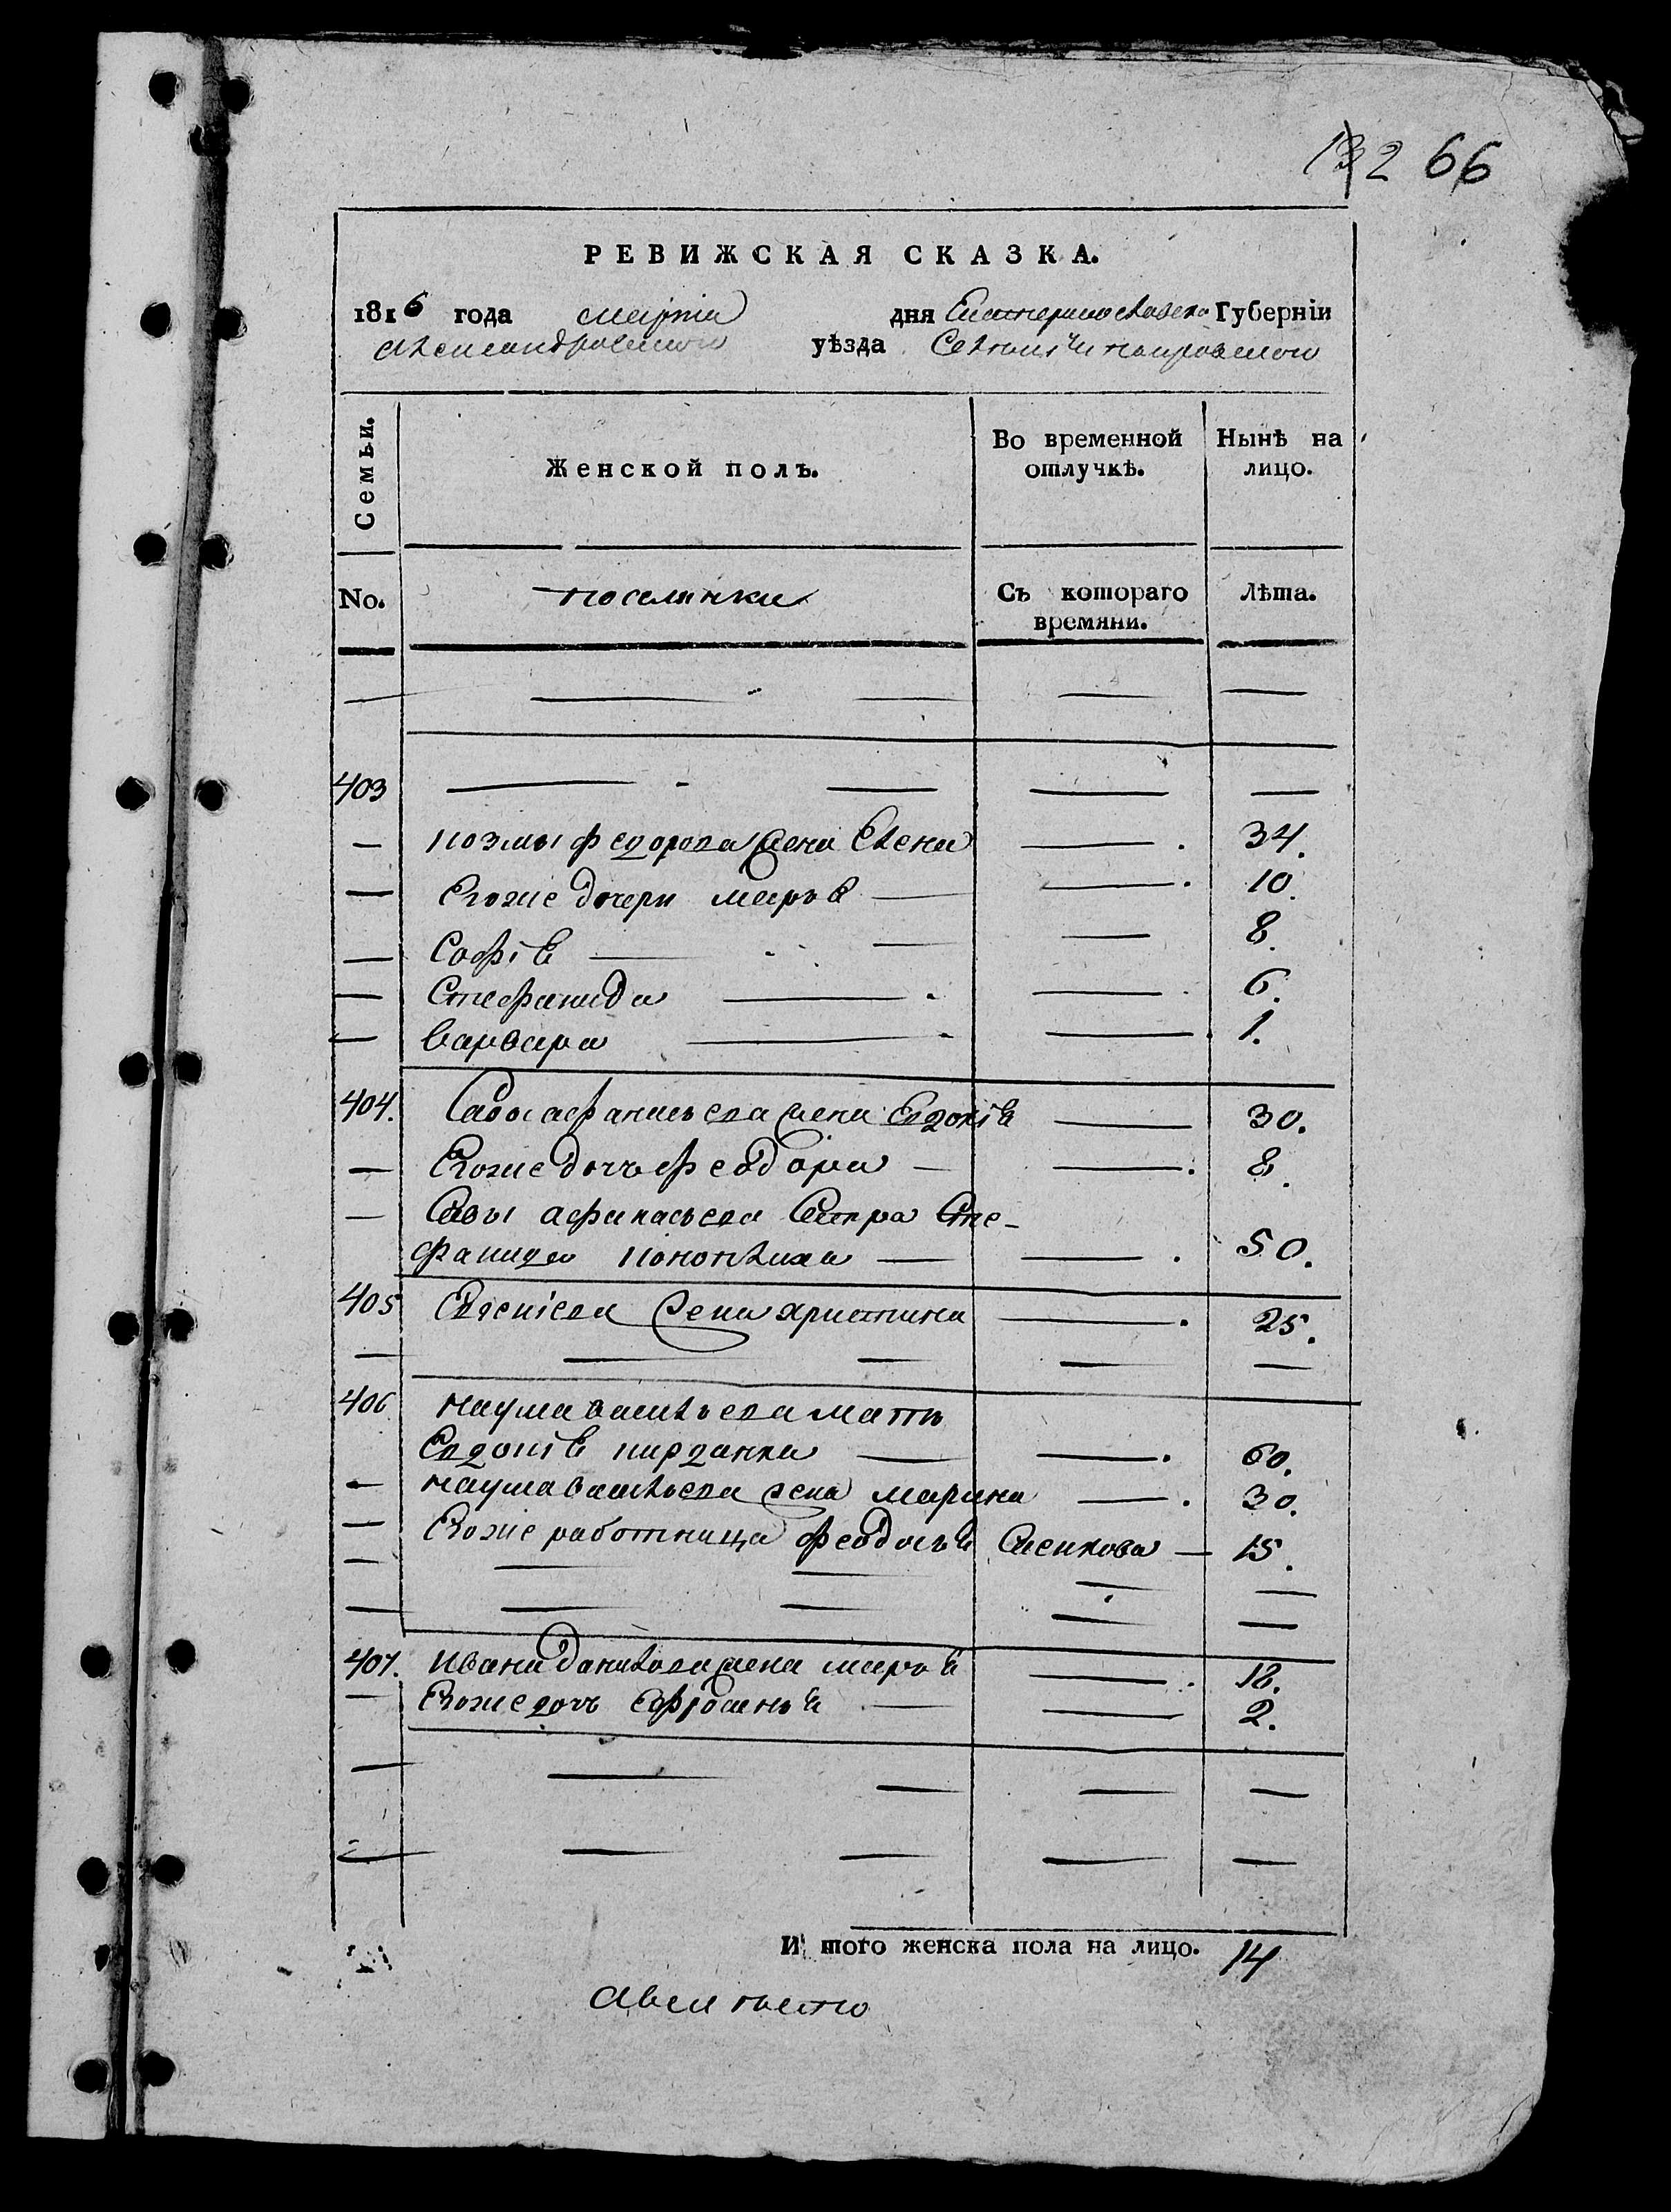 132 66
РЕВИЖСКАЯ СКАЗКА.
1816 года марта дня Екатеринославско Губернїи
александровского уѣзда Селенія покровского
Семьи. Женской полъ. Во временной отлучкѣ. Нынѣ на лицо.
No. поселянки Съ котораго времяни. Лѣта.
403
козмы федорова жена Елена 34.
Егоже дочери маря 10.
Софія 8.
Стефанида 6.
варвара 1.
404. Савы афанасьева жена Евдокія 30.
Егоже дочь феодора 8.
Савы афанасьева Сестра Сте-
фанида 50.
405 Евгенієва жена христина 25.
406 наума васильева мать
Евдокія 60.
наума васильева жена марина 30.
Егоже работница феодосья 15.
407. ивана данилова жена марья 18.
Егоже дочь Ефросинья 2.
И того женска пола на лицо. 14